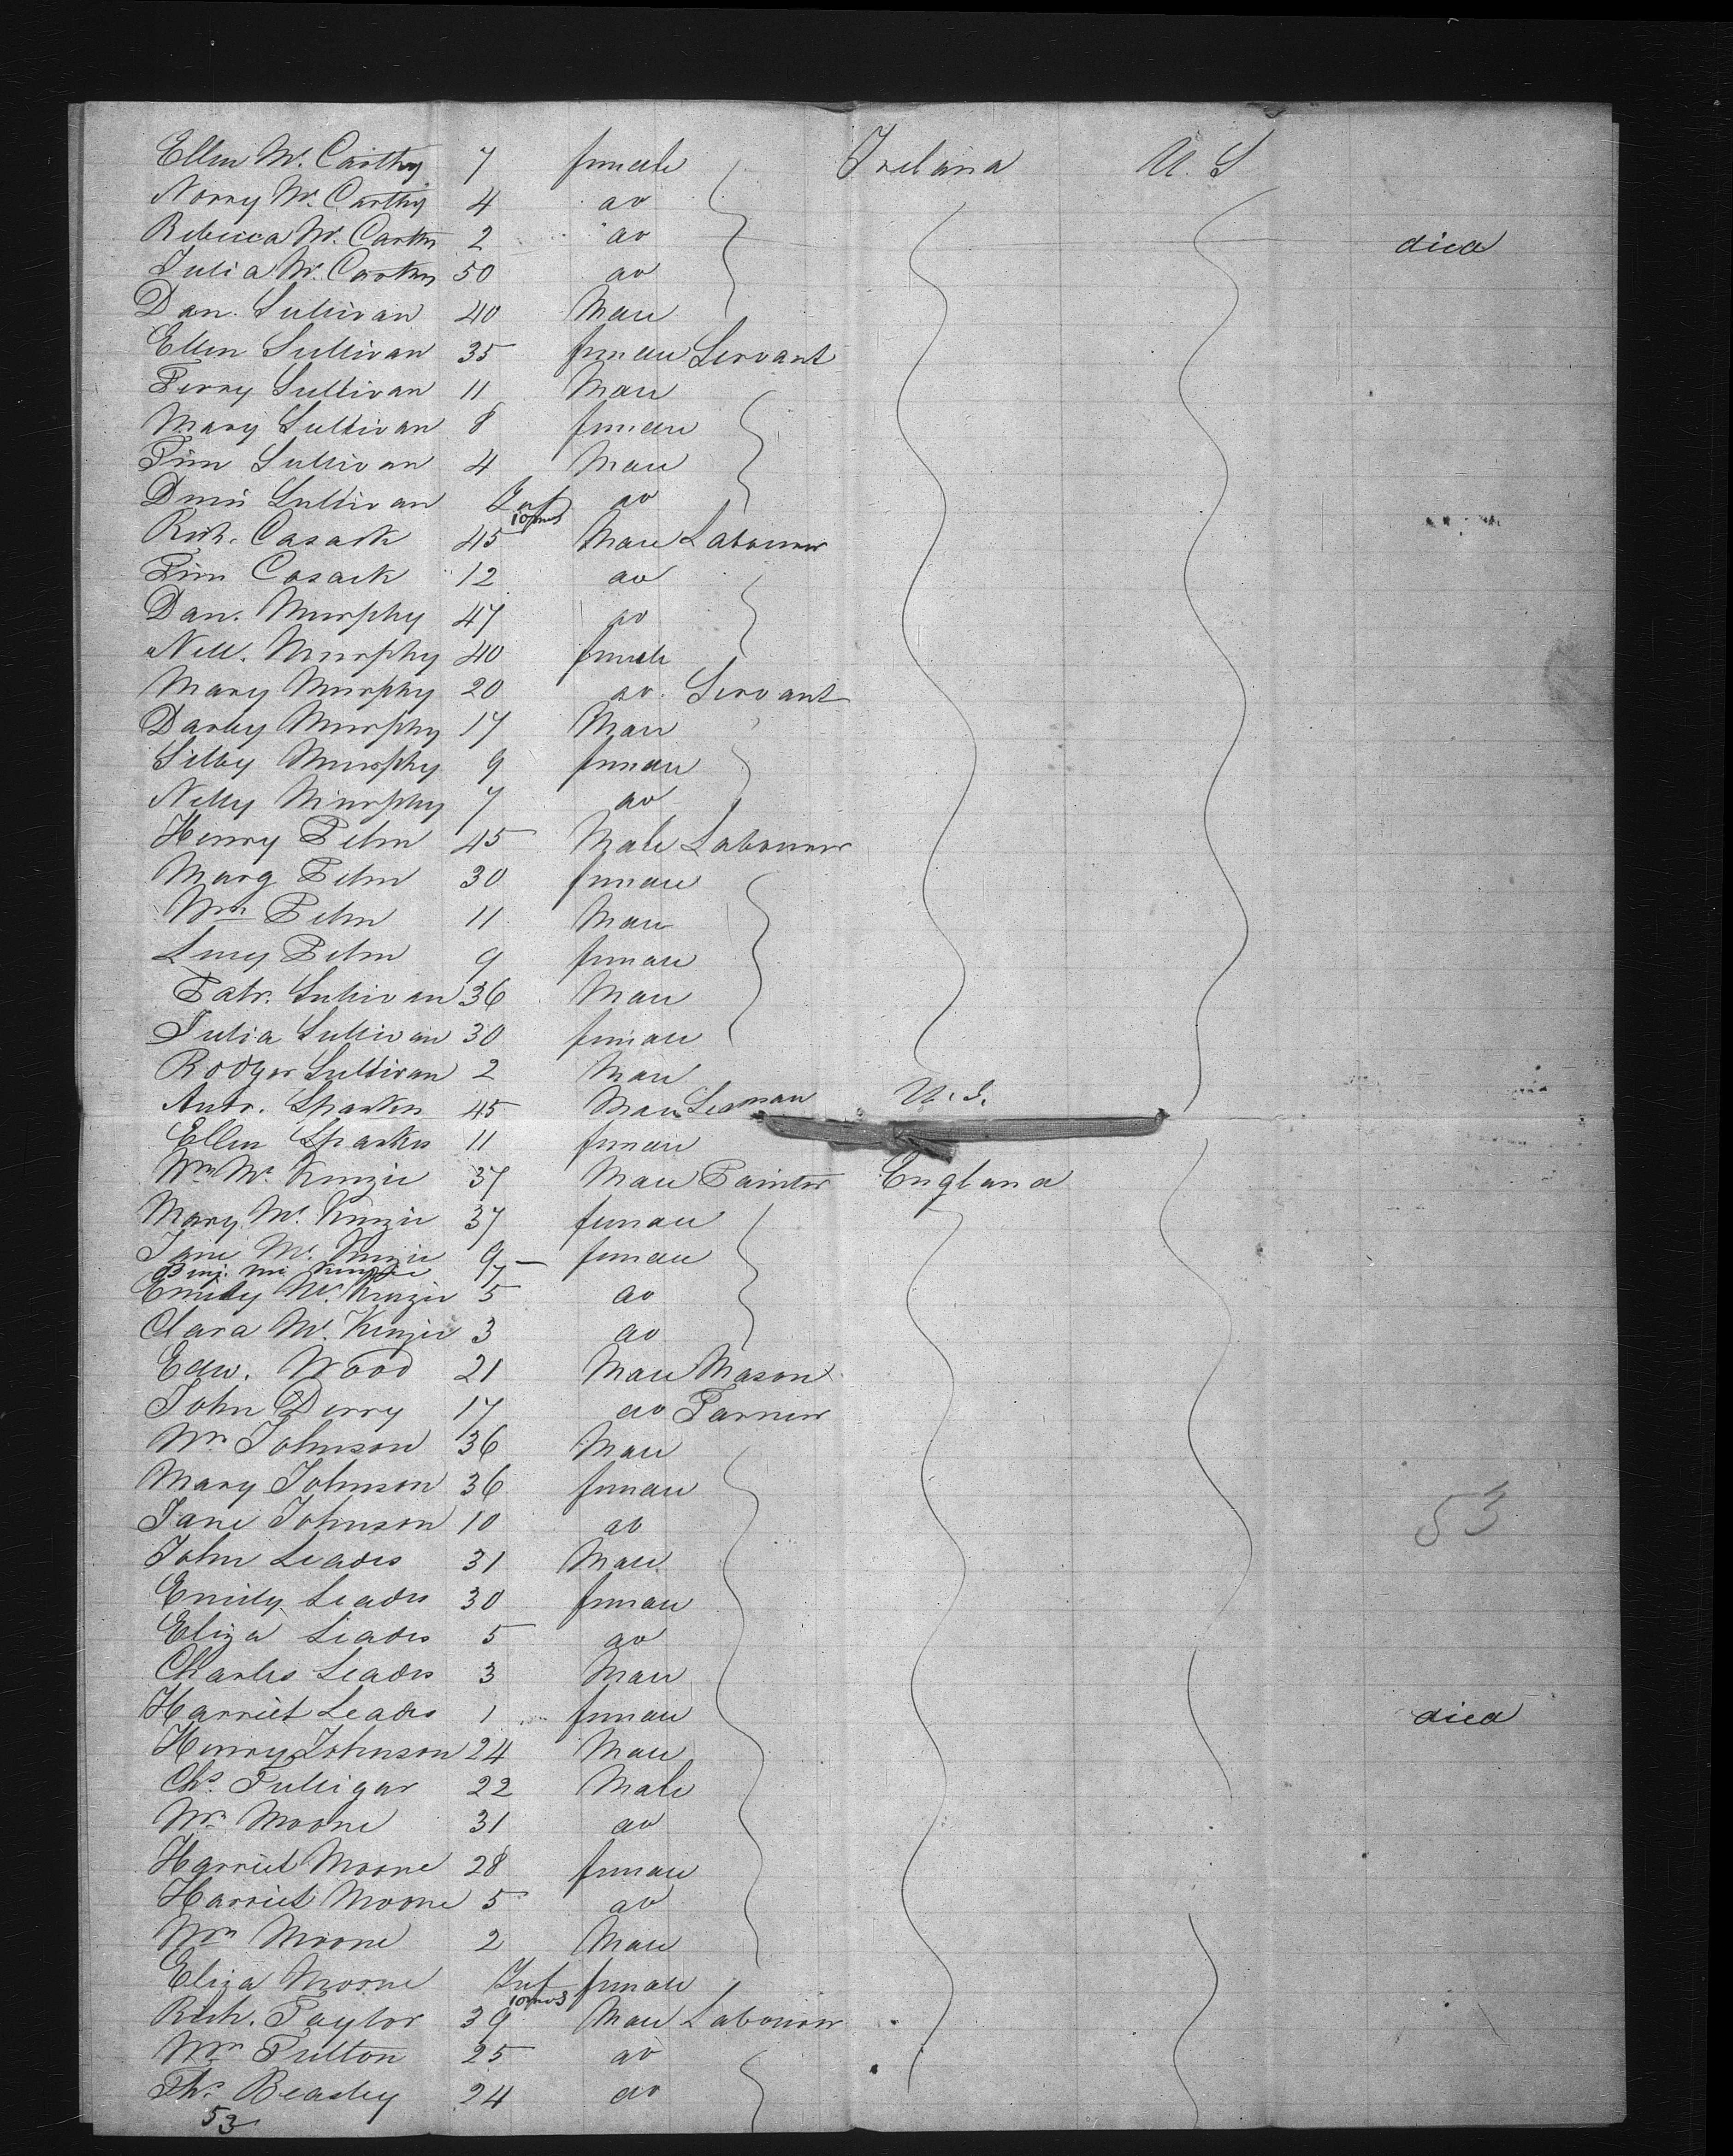 Ellen Mc. Carthy 7 female Ireland U. S
Norry Mc. Carthy 4 do
Rebecca Mc. Carthy 2 do died
Julia Mc. Carthy 50 do
Dan. Sullivan 40 Male
Ellen Sullivan 35 female Servant
Terry Sullivan 11 Male
Mary Sullivan 8 female
Tim Sullivan 4 Male
Denis Sullivan Inf 10 mos do
Rich. Casack 45 Male Labourer
Tim Casack 12 do
Dan. Murphy 47 do
Nell. Murphy 40 female
Mary Murphy 20 do. Servant
Darby Murphy 17 Male
Silby Murphy 9 female
Nelly Murphy 7 do
Henry Pelm 45 Male Labourer
Marg Pelm 30 female
Wm Pelm 11 Male
Lucy Pelm 9 female
Patr. Sullivan 36 Male
Julia Sullivan 30 female
Rodger Sullivan 2 Male
Andr. Sparkes 45 Male Seaman U. S.
Ellen Sparkes 11 female
Wm Mc. Kenzie 37 Male Painter England
Mary Mc. Kenzie 37 female
Jane Mc. Kenzie 9 — female
Benj. Mc Kenzie 7
Emily Mc. Kenzie 5 do
Clara Mc. Kenzie 3 do
Edw. Wood 21 Male Mason
John Derry 17 do Farmer
Wm Johnson 36 Male
Mary Johnson 36 female
Jane Johnson 10 do 53
John Leades 31 Male
Emily Leades 30 female
Eliza Leades 5 do
Charles Leades 3 Male
Harriet Leades 1 female died
Henry Johnson 24 Male
Chs. Fulligar 22 Male
Wm Moone 31 do
Harriet Moone 28 female
Harriet Moone 5 do
Wm Moone 2 Male
Eliza Moone Inf 10 mos female
Rich. Taylor 39 Male Labourer
Wm Fulton 25 do
Ths. Beasley 24 do
53